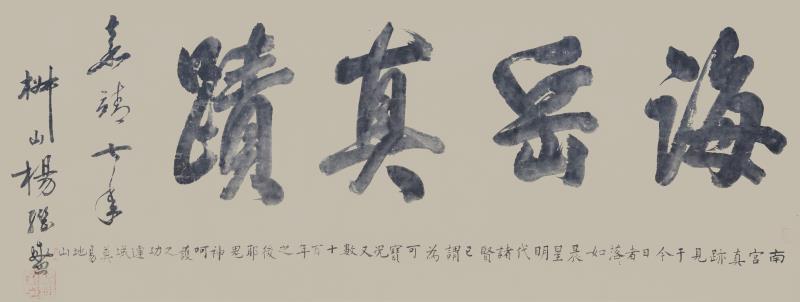 海岳真蹟
嘉靖七年
椒山楊繼盛
南宮真跡見于今日者落々如晨星明代諸賢已謂為可寶況又數十百年之後耶鬼神呵護之功連城莫易地山